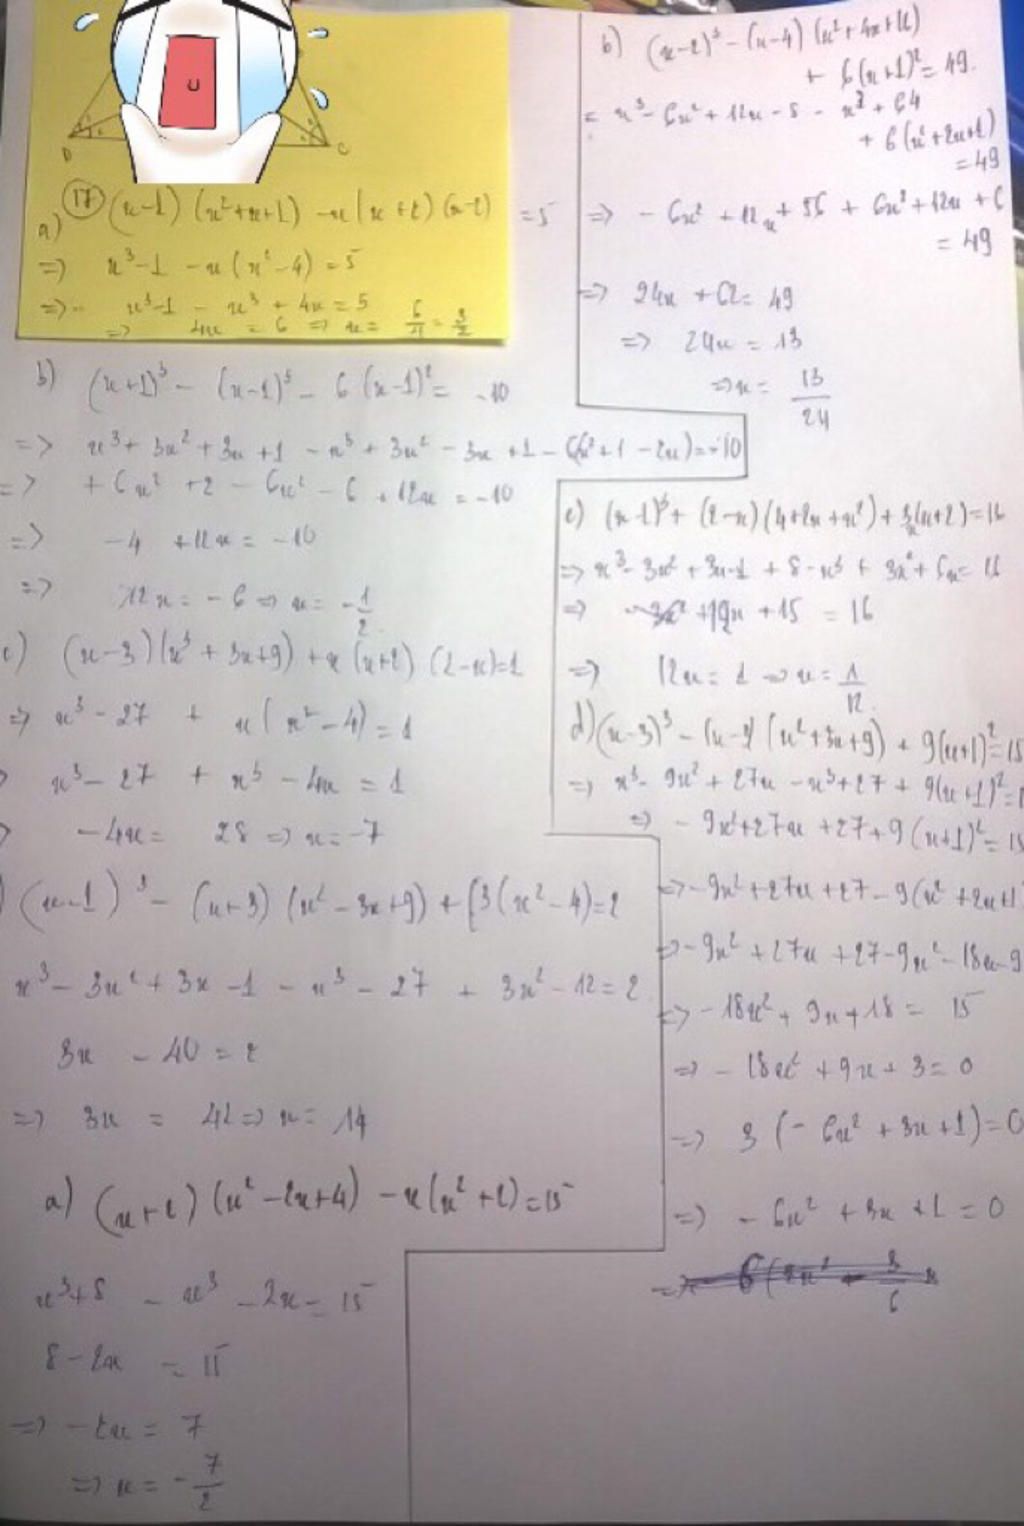 D C
17
a) (x-1)(x²+x+1) -x(x+2)(x-2) = 5
=> x³-1 -x(x²-4) = 5
=> x³-1 - x³ + 4x = 5
=> 4x = 6 => x = 6/4 = 3/2
b) (x+1)³ - (x-1)³ - 6(x-1)² = -10
=> x³ + 3x² + 3x + 1 - x³ + 3x² - 3x + 1 - 6(x²+1-2x) = -10
=> + 6x² + 2 - 6x² - 6 + 12x = -10
=> -4 + 12x = -10
=> 12x = -6 => x = -1/2
c) (x-3)(x³ + 3x+9) + x(x+2)(2-x) = 1
=> x³ - 27 + x(x²-4) = 1
x³ - 27 + x³ - 4x = 1
-4x = 28 => x = -7
(x-1)³ - (x+3)(x² - 3x+9) + [3(x²-4) = 2
x³ - 3x² + 3x - 1 - x³ - 27 + 3x² - 12 = 2
3x - 40 = 2
=> 3x = 42 => x = 14
a) (x+2)(x² - 2x+4) - x(x²+2) = 15
x³+8 - x³ - 2x = 15
8-2x = 15
=> -2x = 7
=> x = -7/2
b) (x-2)³ - (x-4)(x²+4x+16)
+ 6(x+1)² = 49.
= x³ - 6x² + 12x - 8 - x³ + 64
+ 6(x²+2x+1)
= 49
=> - 6x² + 12x + 56 + 6x² + 12x + 6
= 49
=> 24x + 62 = 49
=> 24x = 13
=> x = 13/24
c) (x-1)³ + (2-x)(4+2x+x²) + 3x(x+2) = 16
=> x³ - 3x² + 3x-1 + 8 - x³ + 3x² + 6x = 16
=> + 12x + 15 = 16
=> 12x = 1 => x = 1/12.
d) (x-3)³ - (x-3)(x²+3x+9) + 9(x+1)² = 15
=> x³ - 9x² + 27x - x³ + 27 + 9(x+1)² =
=> - 9x² + 27x + 27 + 9(x+1)² = 15
=> -9x² + 27x + 27 - 9(x² + 2x+1
=> -9x² + 27x + 27 - 9x² - 18x - 9
=> -18x² + 9x + 18 = 15
=> - 18x² + 9x + 3 = 0
=> 3(- 6x² + 3x + 1) = 0
=> - 6x² + 3x + 1 = 0